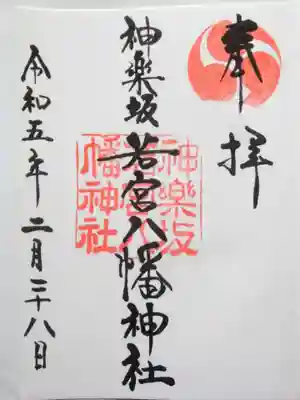 奉拝
神楽坂若宮八幡神社
神樂坂
若宮八
幡神社
令和五年二月二十八日